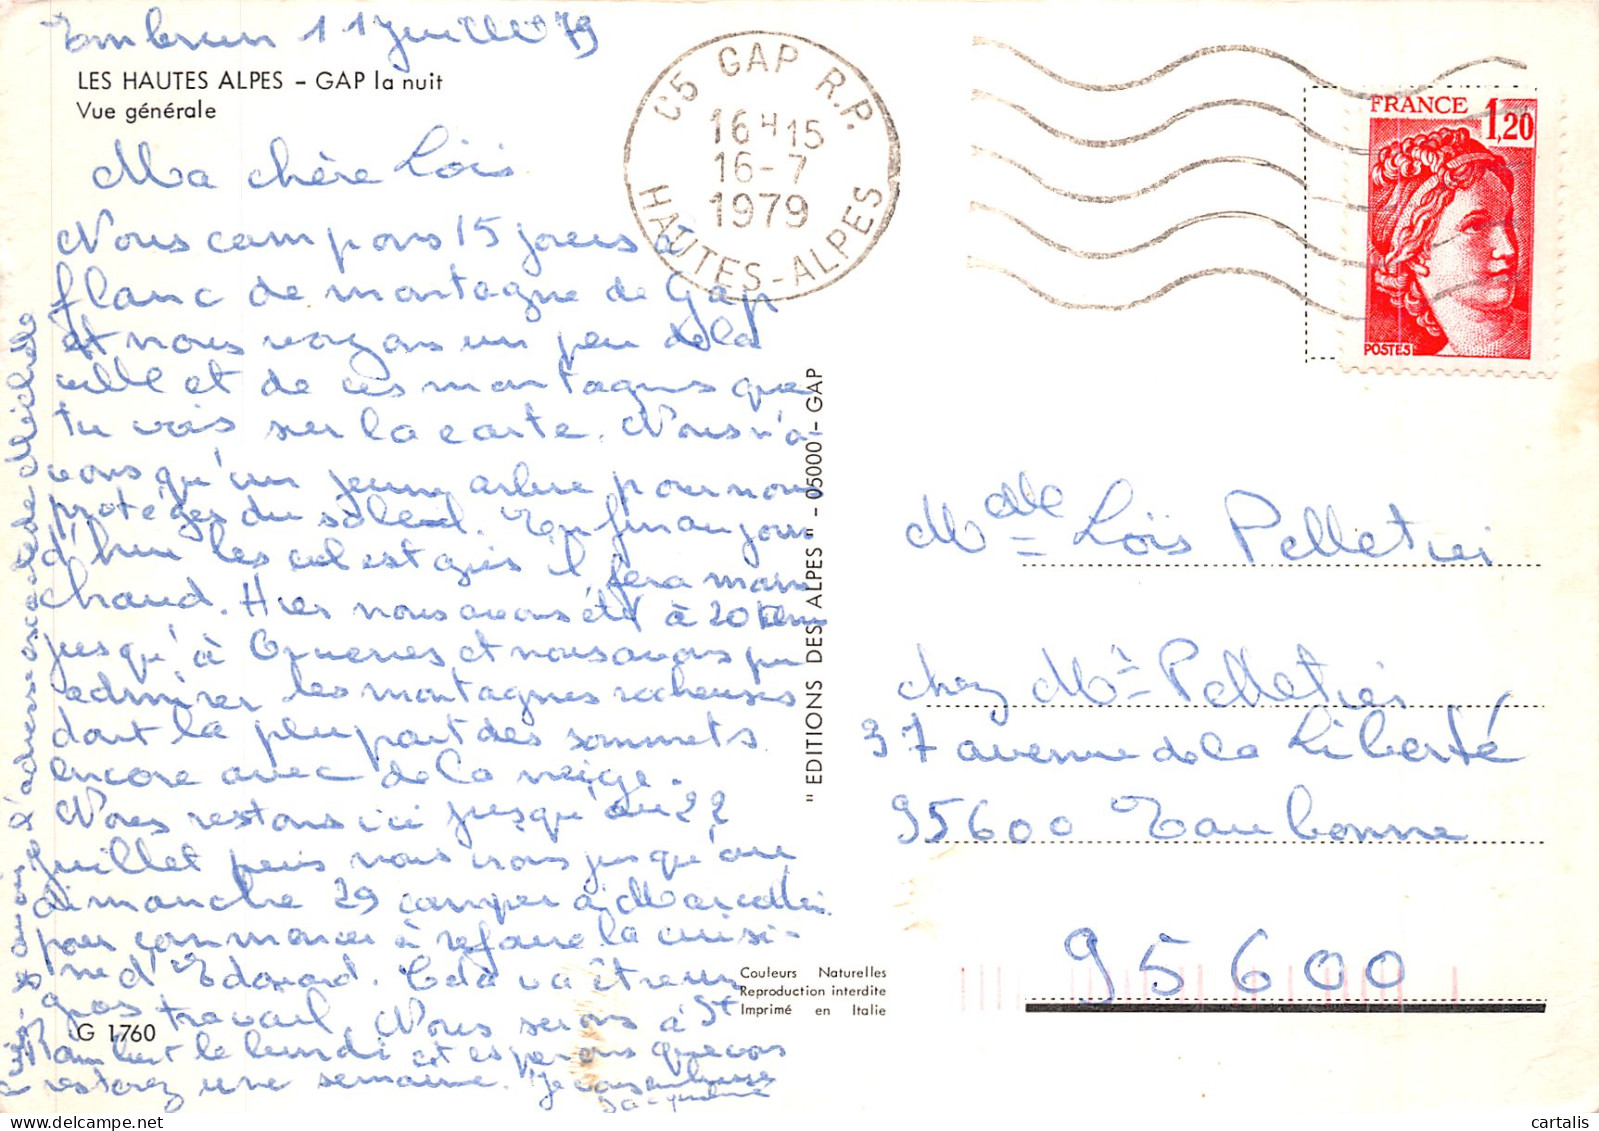 Embrun 11 Juillet 79
LES HAUTES ALPES – GAP la nuit
Vue générale
Ma chère Loïs
Nous campons 15 jours à
flanc de montagne de Gap
et nous voyons un peu de la
ville et de ces montagnes que
tu vois sur la carte. Nous n'a-
vons qu'un jeune arbre pour nous
protéger du soleil. Enfin aujour
d'hui le ciel est gris il fera moins
chaud. Hier nous avons été à 20 kms
jusqu'à et nous avons pu
admirer les montagnes rocheuses
dont la plupart des sommets
encore avec de la neige.
Nous restons ici jusqu'au 22
juillet puis nous irons jusqu'au
dimanche 29 camper à
pour commencer à refaire la cuisi-
ne d'Edouard. Cela va être un
gros travail. Nous serons à St
Rambert le lundi et espérons que vous
resterez une semaine. Je vous embrasse
Jacqueline
l'adresse de Michelle
G 1760
C5 GAP R.P.
16 H 15
16-7
1979
HAUTES-ALPES
FRANCE 1,20
POSTES
" EDITIONS DES ALPES " - 05000 - GAP
Couleurs Naturelles
Reproduction interdite
Imprimé en Italie
Mdlle Loïs Pelletier
chez Mr Pelletier
37 avenue de la Liberté
95600 Eaubonne
95600
cartalis